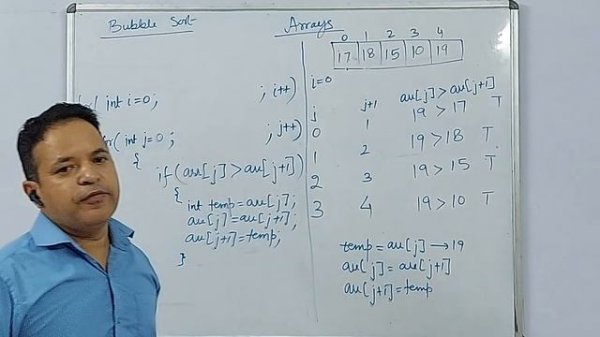 Bubble Sort
Arrays
0 1 2 3 4
17 18 15 10 19
int i=0; ; i++)
( int j=0; ; j++)
{
if (arr[j] > arr[j+1])
{
int temp = arr[j];
arr[j] = arr[j+1];
arr[j+1] = temp;
}
i=0
j j+1 arr[j] > arr[j+1]
0 1 19 > 17 T
1 2 19 > 18 T
2 3 19 > 15 T
3 4 19 > 10 T
temp = arr[j] → 19
arr[j] = arr[j+1]
arr[j+1] = temp